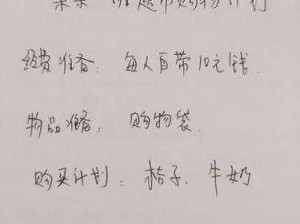 班超市购物计划
经费准备：每人自带10元钱.
物品准备：购物袋.
购买计划：桔子、牛奶